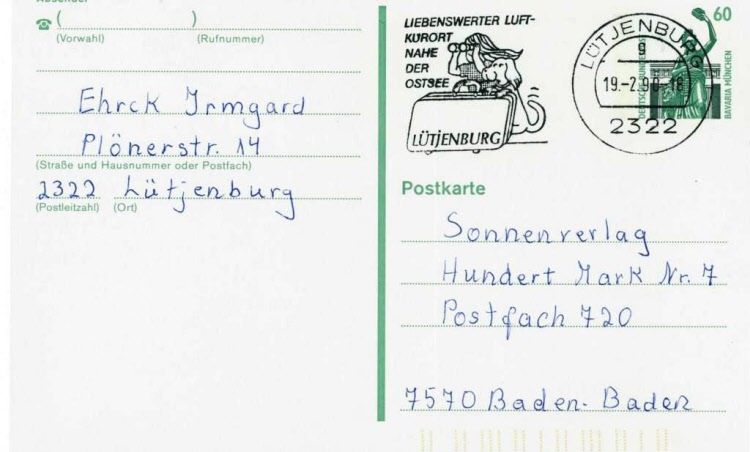 Absender
☎ ( )
(Vorwahl) (Rufnummer)
Ehrck Irmgard
Plönerstr. 14
(Straße und Hausnummer oder Postfach)
2322 Lütjenburg
(Postleitzahl) (Ort)
LIEBENSWERTER LUFT-
KURORT
NAHE
DER
OSTSEE
LÜTJENBURG
LÜTJENBURG
g
19.-2.90-18
2322
60
DEUTSCHE BUNDESPOST
BAVARIA MÜNCHEN
Postkarte
Sonnenverlag
Hundert Mark Nr. 7
Postfach 720
7570 Baden-Baden